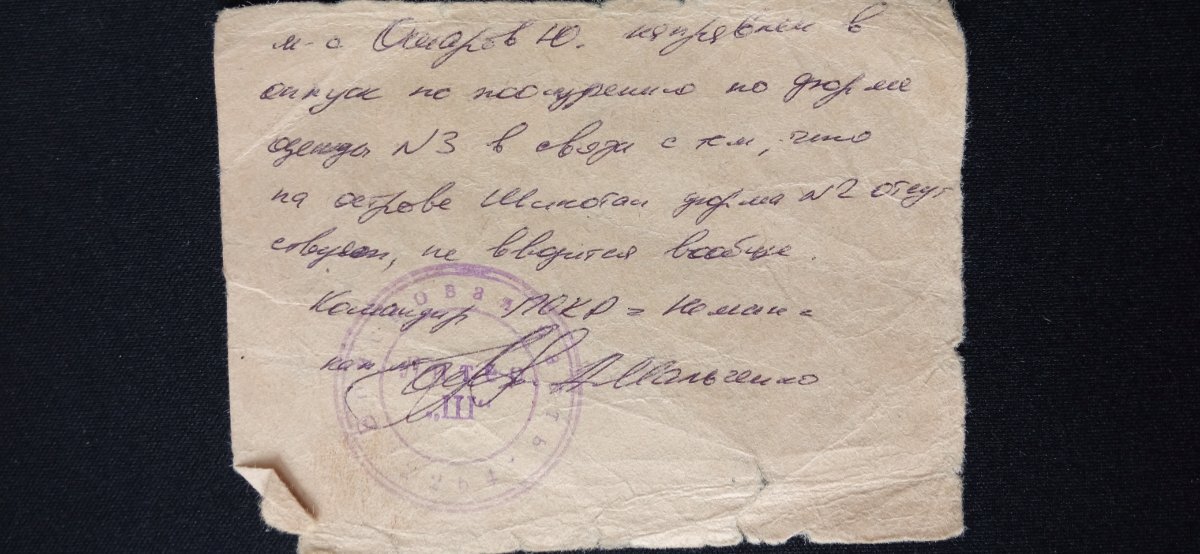 м-с Омаров Ю. направлен в
отпуск по поощрению по форме
одежды №3 в связи с тем, что
на острове Шикотан форма №2 отсут
ствует, не вводится вообще.
Командир ПСКР = Неман =
Мальченко
"Ш"